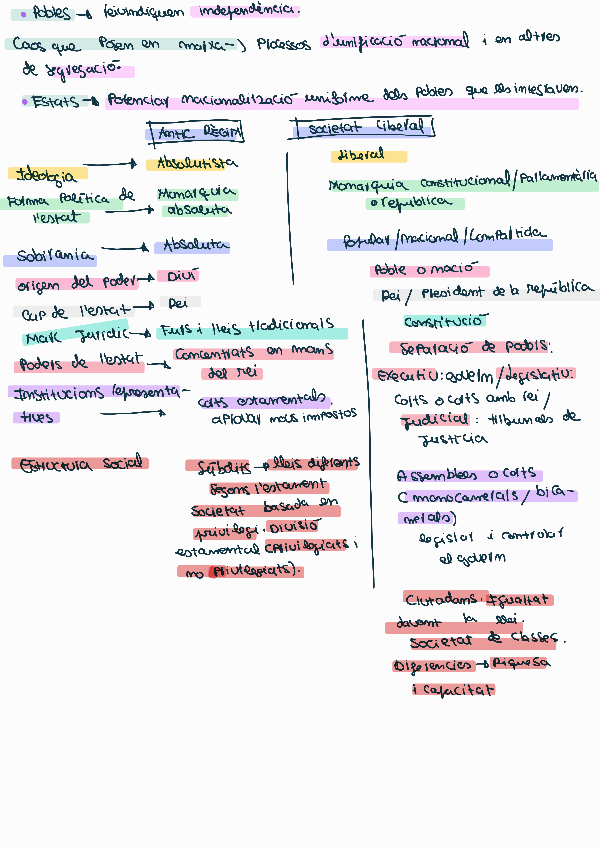 • Pobles → reivindiquen independència.
Caos que posen en marxa → processos d'unificació nacional i en altres
de segregació.
• Estats → Potenciar nacionalització uniforme dels pobles que els integraven.
Antic Règim
Societat liberal
Ideologia → Absolutista
liberal
Forma política de l'estat → Monarquia absoluta
Monarquia constitucional/Parlamentària
o república
Sobirania → Absoluta
Popular/Nacional/Compartida
Origen del poder → Diví
Poble o nació
Cap de l'estat → Rei
Rei / President de la república
Marc jurídic → Furs i lleis tradicionals
Constitució
Poders de l'estat → Concentrats en mans
del rei
Separació de poders:
Executiu: govern/legislatiu:
Corts o corts amb rei/
judicial: tribunals de
justícia
Institucions representa-
tives → corts estamentals.
aprovar nous impostos
Assemblees o corts
(monocamerals/bica-
merals)
legislar i controlar
el govern
Estructura social
Súbdits → lleis diferents
segons l'estament
Societat basada en
privilegi. Divisió
estamental (Privilegiats i
no Privilegiats).
Ciutadans. Igualtat
davant la llei.
Societat de classes.
Diferències → Riquesa
i capacitat